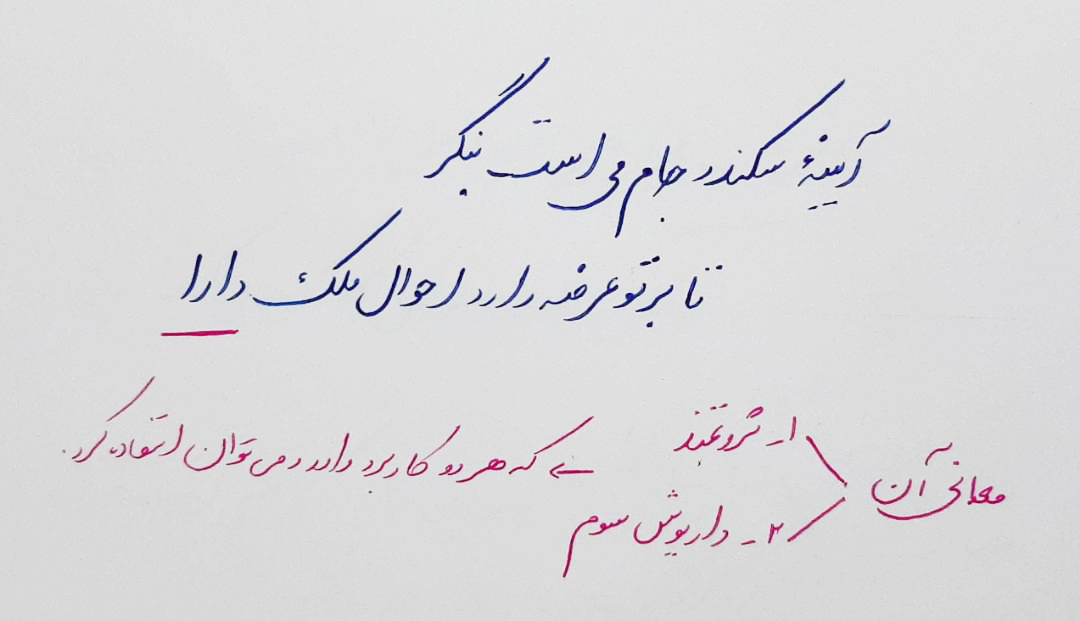 آیینهٔ سکندر جام می است بنگر
تا بر تو عرضه دارد احوال ملک دارا
معانی آن
۱ـ ثروتمند
۲ـ داریوش سوم
که هر دو کاربرد دارد و می توان استفاده کرد.